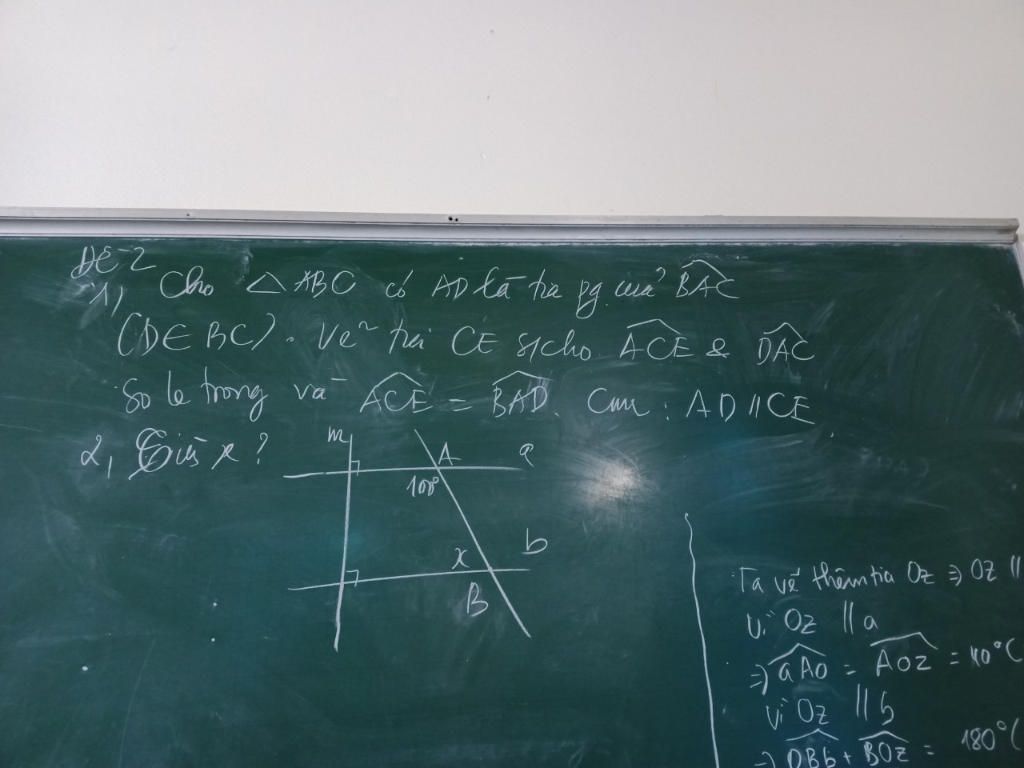 ĐỀ-2
1, Cho △ABC có AD là tia pg của BAC
(D∈BC). Vẽ tia CE s/cho ACE & DAC
So le trong và ACE = BAD. Cm: AD//CE.
2, Giải x?
m A a
100°
x b
B
Ta vẽ thêm tia Oz ⇒ Oz //
Vì Oz // a
⇒ aAO = AOz = 40° (
Vì Oz // b
⇒ OBb + BOz = 180° (